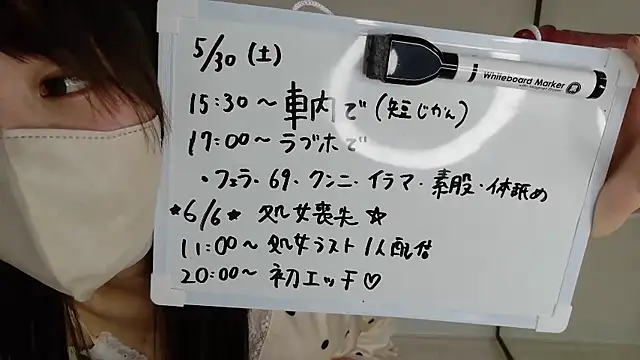 5/30 (土)
Whiteboard Marker
15:30~ 車内で (短じかん)
17:00~ ラブホで
・フェラ・69・クンニ・イラマ・素股・体舐め
*6/6* 処女喪失☆
11:00~ 処女ラスト1人配信
20:00~ 初エッチ♡